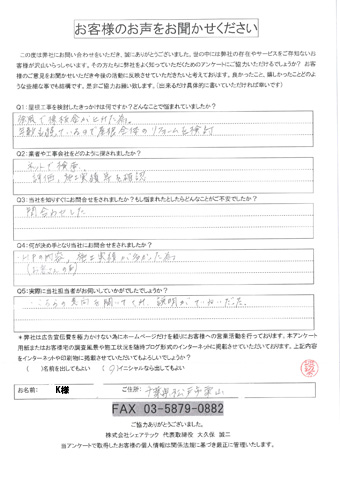 お客様のお声をお聞かせください
この度は弊社にお問い合わせをいただき、誠にありがとうございました。世の中には弊社の存在やサービスをご存知ないお
客様が沢山いらっしゃいます。その方たちに弊社をよく知っていただくためのアンケートにご協力いただけるでしょうか？お客
様のご意見をお聞かせいただき今後の活動に反映させていただきたいと考えております。良かったこと、嬉しかったことどのよ
うな些細な事でも結構です。是非ご協力お願い致します。（出来るだけ具体的に書いていただければ幸いです）
Q1：屋根工事を検討したきっかけは何ですか？どんなことで悩まれていましたか？
強風で棟板金がとれた為。
年数も経っているので屋根全体のリフォームを検討
Q2：業者や工事会社をどのように探されましたか？
ネットで検索。
評価、施工実績等を確認
Q3：当社を知りすぐにお問合せをされましたか？もし悩まれたとしたらどんなことがご不安でしたか？
問合わせした
Q4：何が決め手となり当社にお問合せをされましたか？
HPの内容、施工実績が多かった為
Q5：実際に当社担当者がお伺いしていかがでしたでしょうか？
こちらの意向を聞いてくれ、説明がていねいだった。
＊弊社は広告宣伝費を極力かけない為にホームページだけを頼りにお客様への営業活動を行っております。本アンケート
用紙またはお客様宅の調査風景や施工状況を随時ブログ形式のインターネットに掲載させていただいております。上記内容
をインターネットや印刷物に掲載させていただいてもよろしいでしょうか？
（　）名前が出してもよい　（○）イニシャルなら出してもよい
お名前：　K様　ご住所：　千葉県松戸市栗山
FAX 03-5879-0882
ご協力ありがとうございました。
株式会社シェアテック　代表取締役　大久保 誠二
当アンケートで取得したお客様の個人情報は関係法規に基づき厳正に管理いたします。